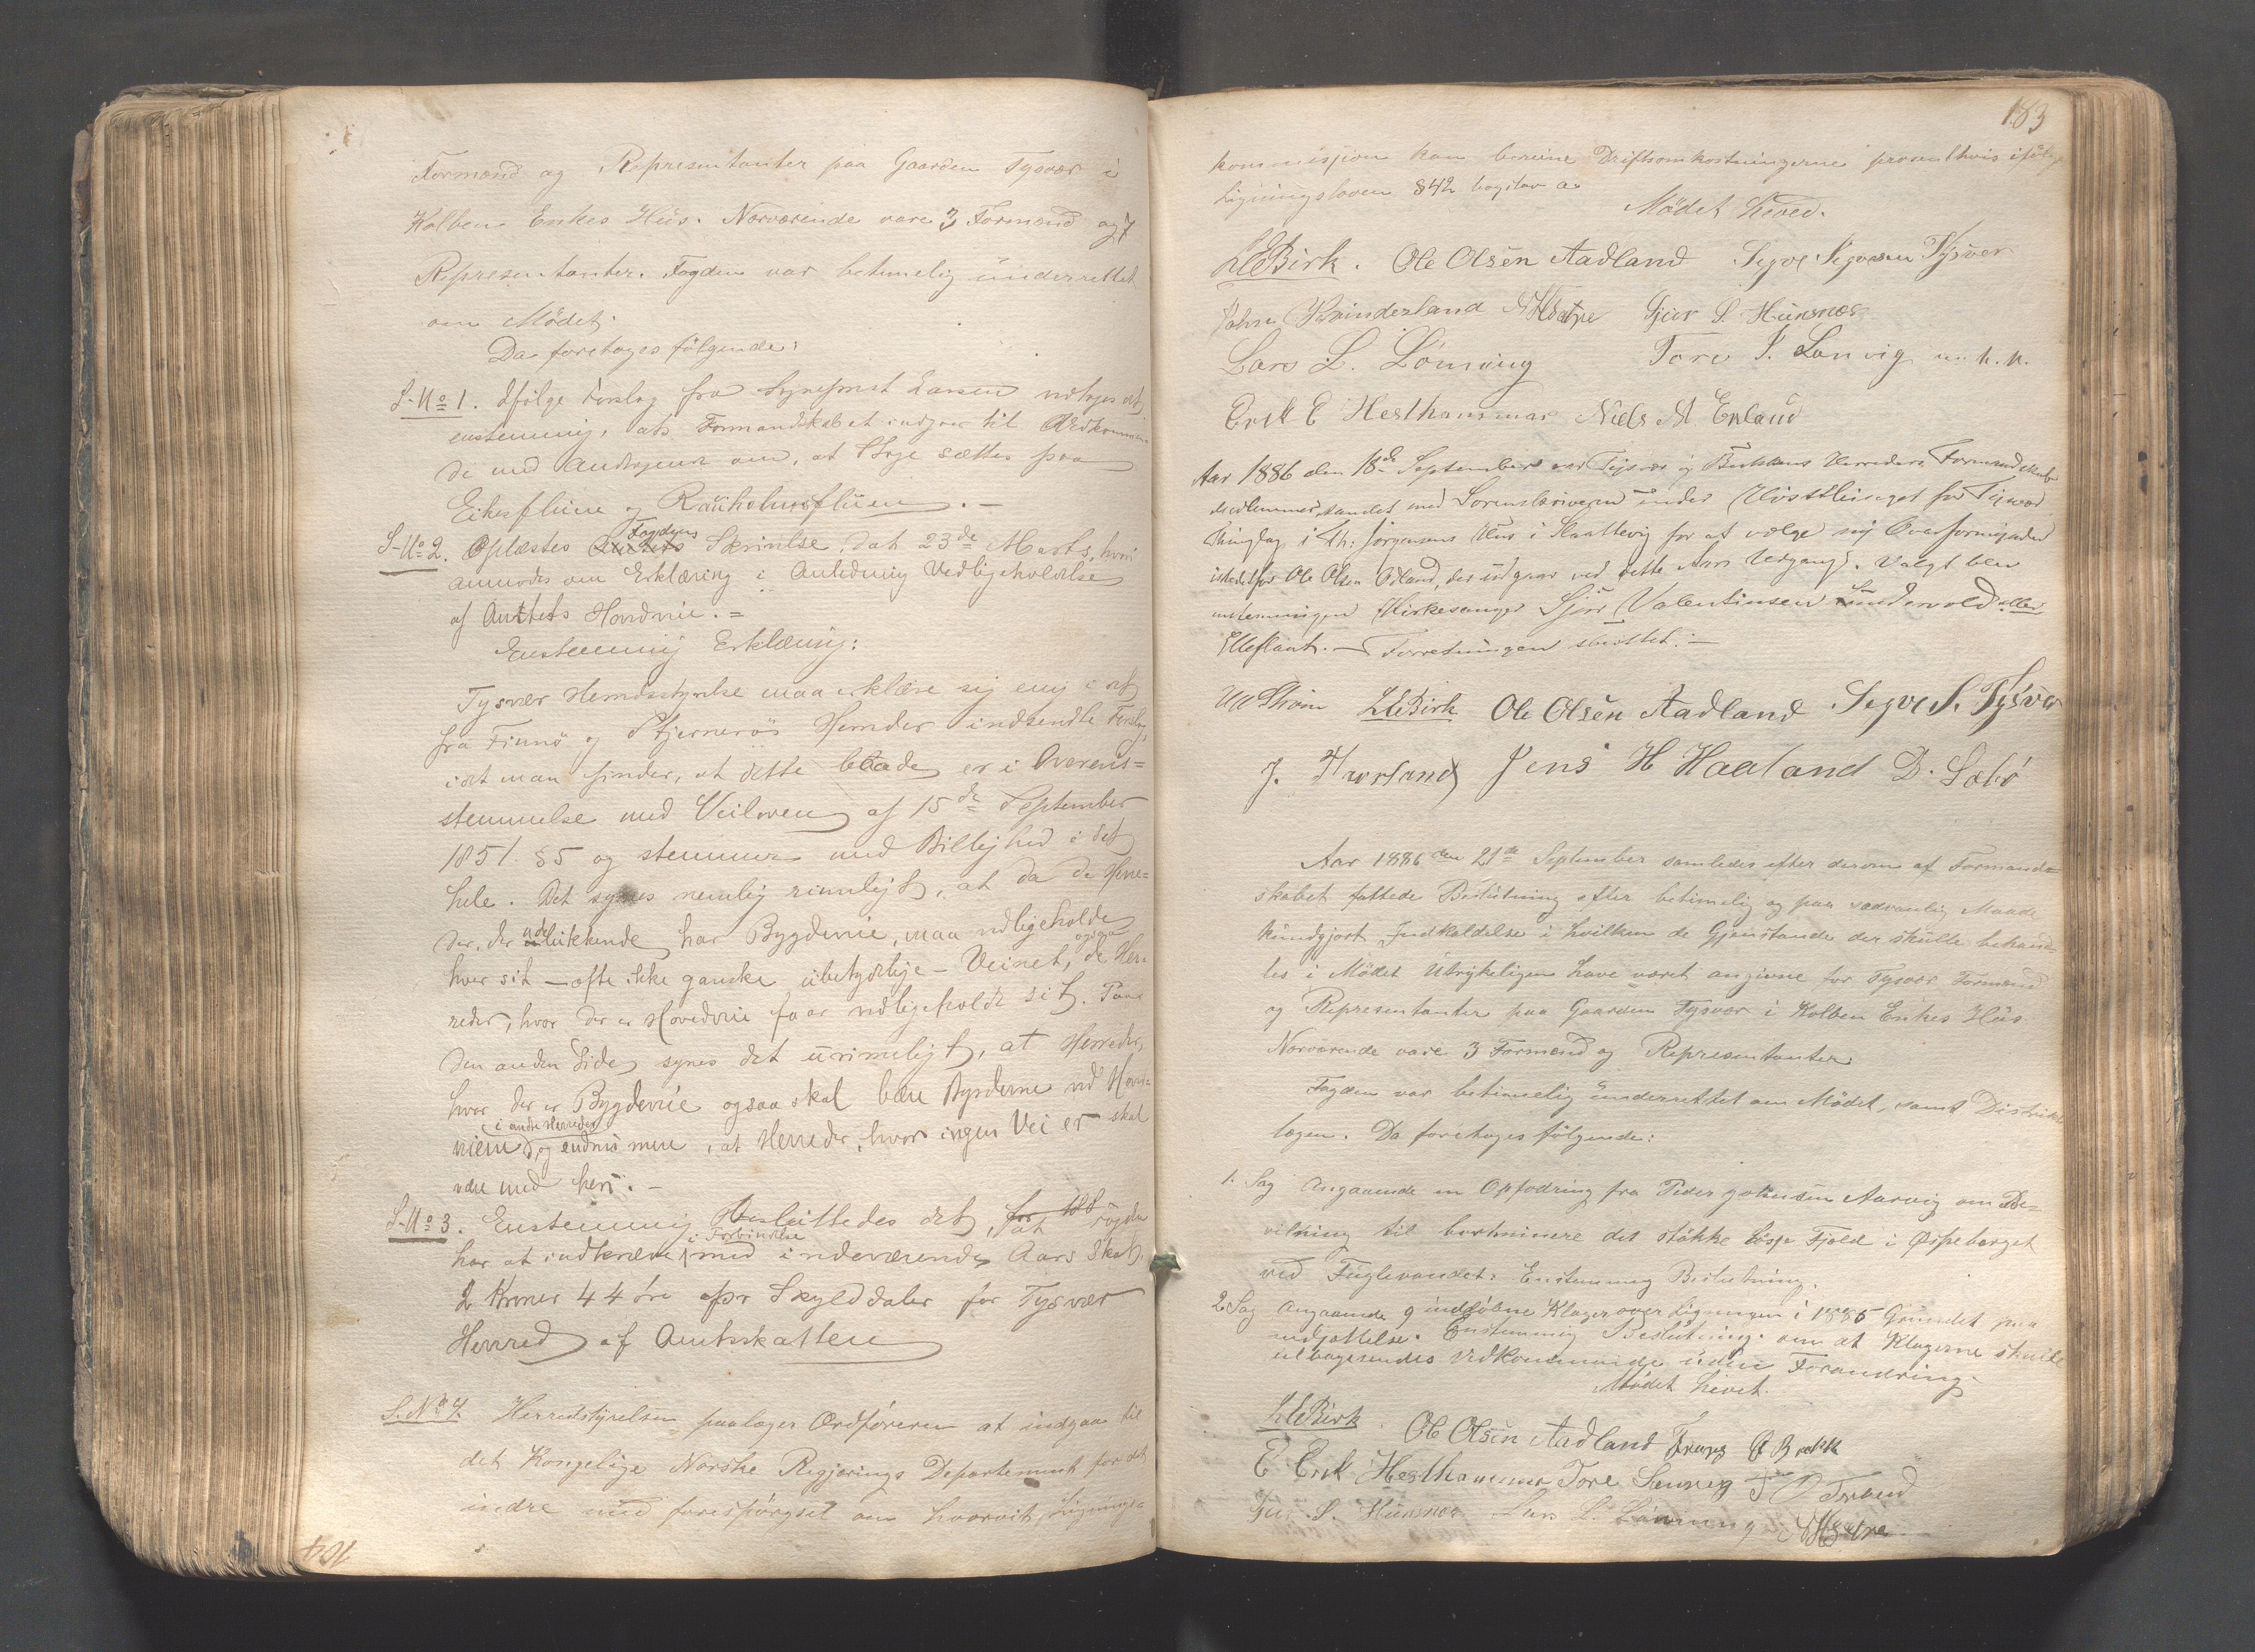 Formænd og Repræsentanter paa Gaarden Tysvær i
Kolben Enkes Hus. Nærværende vare 3 Formænd og 7
Repræsentanter. Fogden var betimelig underrettet
om Mödet.
Da foretoges fölgende:
S-No 1. Ifölge Forslag fra Larsen vedtoges det
enstemmig, at Formandskabet indgaar til Vedkommen-
de med Andragende om, at Stage sættes paa
Eikeflüen og Rauholmsflüen. –
S-No 2. Oplæstes Amtets Fogdens Skrivelse, dat 23de Marts, hvori
anmodes om Erklæring i Anledning Vedligeholdelse
af Amtets Hovedveie. =
Enstemmig Erklæring:
Tysvær Herredsstyrelse maa erklære sig enig i det
fra Finnö og Stjernerös Herreder indsendte Forslag,
idet man finder, at dette baade er i Overens=
stemmelse med Veiloven af 15de September
1851 §5 og stemmer med Billighed i det
hele. Det synes nemlig rimeligt, at da de Herre=
der, der udelukkende har Bygdeveie, maa vedligeholde
hver sit – ofte ikke ganske ubetydelige – Veinet, ogsaa de Her-
reder, hvor der er Hovedveie faar vedligeholde sit. Paa
den anden Side synes det urimeligt, at Herreder,
hvor der er Bygdeveie ogsaa skal bære Byrderne ved Hoved-
veiene i andre Herreder, og endnu mere, at Herreder, hvor ingen Vei er skal
være med heri. –
S-No 3. Enstemmig besluttedes det, at Fogden
har at indkræve i Forbindelse med indeværende Aars Skat,
2 Kroner 44 öre pr Skylddaler for Tysvær
Herred af Amtsskatten
S. No 4. Herredstyrelsen paalæger Ordföreren at indgaa til
det Kongelige Norske Regjerings Departement for det
indre med forespörgsel om hvorvit Lignings=
184
183
kommissjonen kan beregne Driftsomkostningerne prosentvis ifölge
Ligningsloven §42 bogstav a.
Mödet hævet.
LEBirk. Ole Olsen Aadland Segve Segvesen Tysvær
John Kvinderland Gjier S. Hünsnæs
Lars L. Löining Tore S. Lonvig m. h. P.
Erik E Hesthammer Niels M Erland
Aar 1886 den 18de September var Tysvær og Bukkens Herreders Formandskabs
Medlemmer samlet med Sorenskriveren under Höstthinget for Tysvær
Thinglag i Th: Jörgensens Hus i Slaattevig for at vælge ny Overformynder
istedetfor Ole Olsen Ödland, der udgaar ved dette Aars Udgang. Valgt blev
enstemmigen Kirkesanger Sjur Valentinsen
Forretningen sluttet. –
LEBirk Ole Olsen Aadland Segve S. Tysvær
J. Jens H Haaland D. Sæbö
Aar 1886 den 21de September samledes efter derom af Formand=
skabet fattede Beslutning efter betimelig og paa sædvanlig Maade
kundgjort Indkaldelse i hvilken de Gjenstande der skulle behand=
les i Mödet Utrykeligen have været angivne for Tysvær Formænd
og Representanter paa Gaarden Tysvær i Kolben Enkes Hüs.
Nærværende vare 3 Formænd og Representanter
Fogden var betimelig underrettet om Mödet, samt Distrikts
lægen. Da foretoges fölgende:
1. Sag Angaaende en Opfodring fra Peder Johnsen Aarvig om Be=
vilkning til bortminere det stökke löse Fjeld i Øspeberget
ved Fuglevandet. Enstemmig Beslutning.
2 Sag Angaaende 9 indkomne Klager over Ligningen i 1885 Grundet paa
Enstemmig Beslutning om at Klagerne skulle
tilbagesendes Vedkommende uden Forandring.
Mödet hevet.
LEBirk. Ole Olsen Aadland
E Erik Hesthammer Tore Lonvig
Gjier S. Hünsnæs Lars L. Löining